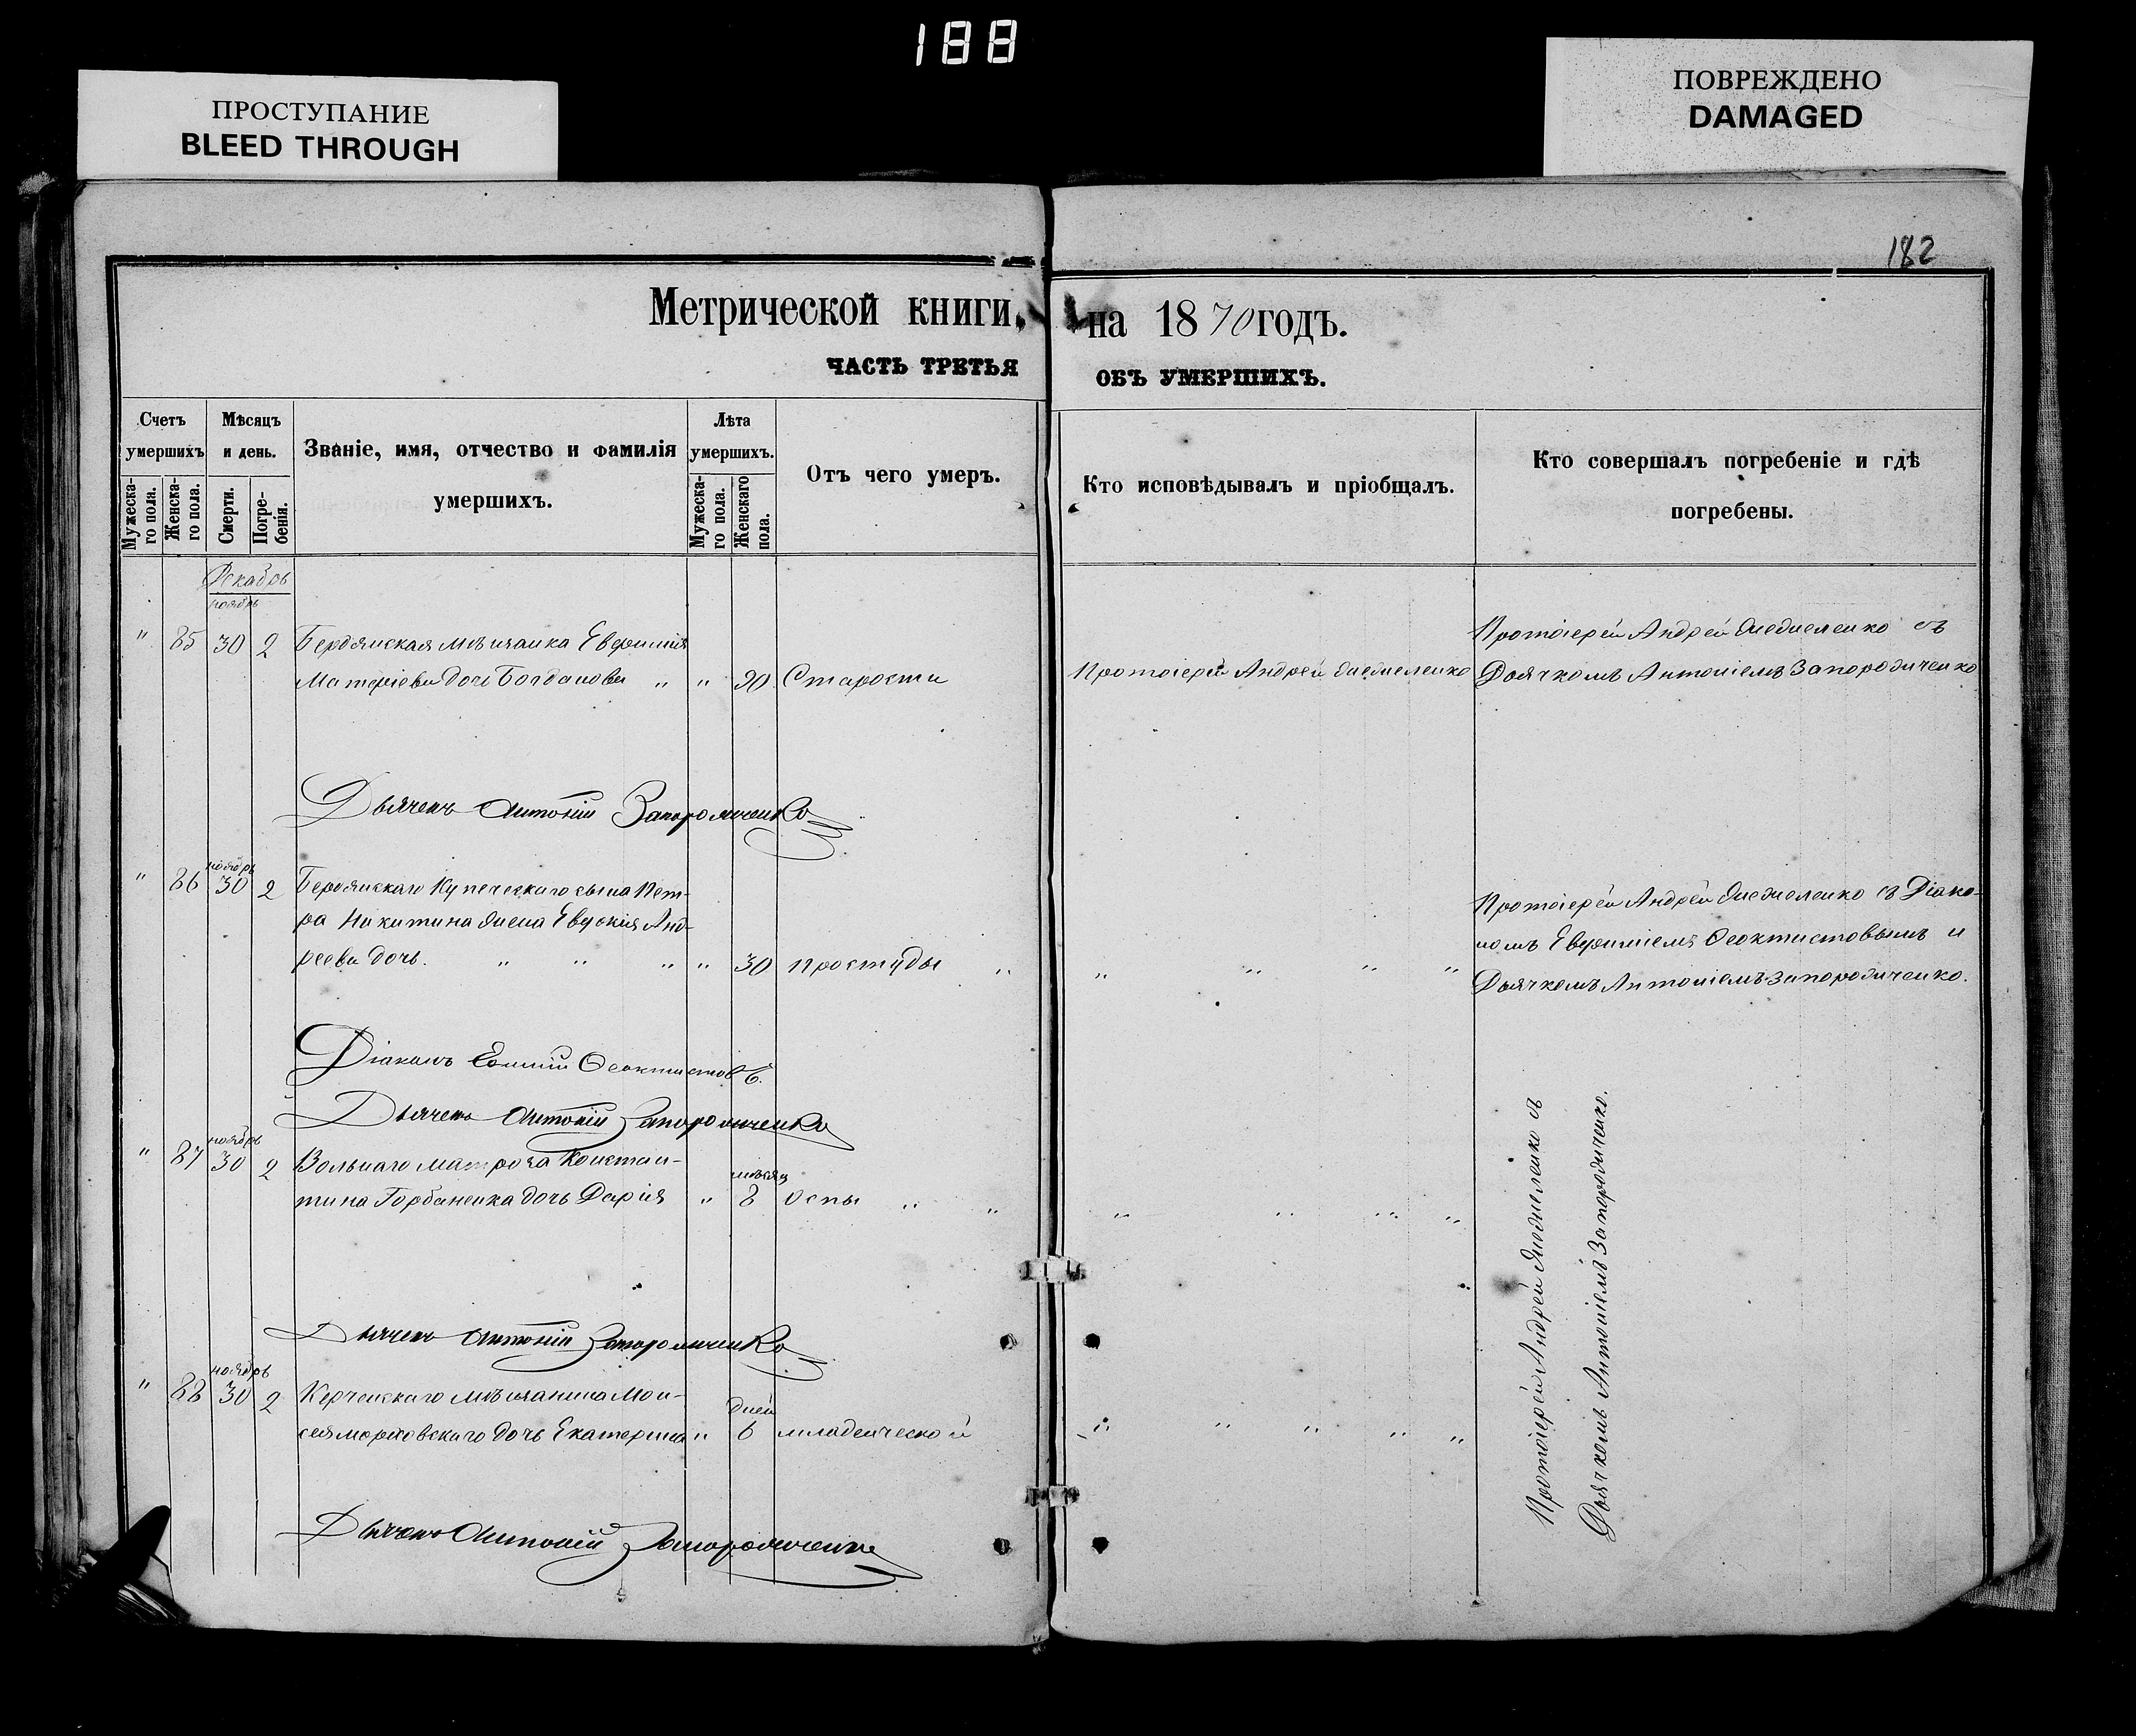 188
ПРОСТУПАНИЕ
BLEED THROUGH
ПОВРЕЖДЕНО
DAMAGED
182
Метрической книги, на 1870 годъ.
ЧАСТЬ ТРЕТЬЯ ОБЪ УМЕРШИХЪ.
Счетъ умершихъ
Мужеска-го пола.
Женска-го пола.
Мѣсяцъ и день.
Смерти.
Погре-бенія.
Званіе, имя, отчество и фамилія
умершихъ.
Лѣта умершихъ.
Мужеска-го пола.
Женскаго пола.
Отъ чего умеръ.
Кто исповѣдывалъ и пріобщалъ.
Кто совершалъ погребеніе и гдѣ
погребены.
Декабрь
ноябрь
" 85 30 2 Бердянская мѣщанка Евфимія
Матфіева дочь Богданова " " 90 Старости
Протоіерей Андрей
Протоіерей Андрей съ
Дьячкомъ Антоніемъ Запорожченко
Дьячекъ Антоній Запорожченко
ноябрь
" 86 30 2 Бердянскаго купеческаго сына Пет-
ра Никитина жена Евдокія Анд-
реева дочь. " " " " 30 простуды "
" " " "
Протоіерей Андрей съ Діако-
номъ Евфиміемъ Феоктистовымъ и
Дьячкомъ Антоніемъ Запорожченко.
Діаконъ Феоктистовъ.
Дьячекъ Антоній Запорожченко
ноябрь
" 87 30 2 Вольнаго матроса Констан-
мѣсяц
тина Горбаненка дочь Дарія " 8 Оспы " "
" " " "
Дьячекъ Антоній Запорожченко
ноябрь
" 88 30 2 Керченскаго мѣщанина Мои-
дней
сея дочь Екатерина " 6 младенческой
" " " " "
Протоіерей Андрей съ
Дьячкомъ Антоніемъ Запорожченко.
Дьячекъ Антоній Запорожченко